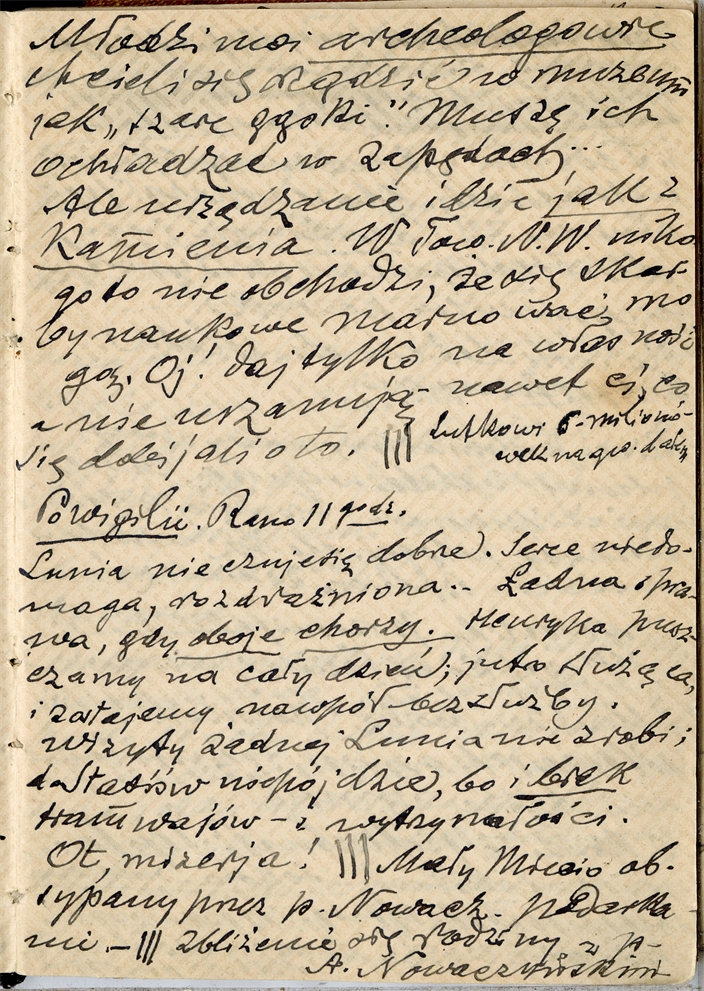 Młodzi moi archeologowie
chcieli się rządzić w muzeum
jak „szare gąski". Muszę ich
ochładzać w zapędach...
Ale urządzanie idzie jak z
kamienia. W Tow. N. W. niko
go to nie obchodzi, że się skar-
by naukowe marnować mo
gą. Oj! daj tylko na własność
a nie uszanują - nawet ci, co
się dobijali o to. ||| Lutkowi 5-milionó-
wek na gw.
Powigilii. Rano 11 godz.
Lunia nie czuje się dobrze. Serce niedo-
maga, rozdrażniona.. Ładna spra-
wa, gdy oboje chorzy. Henryka pusz-
czamy na cały dzień; jutro służąca,
i zostajemy nawpół bez służby.
Wizyty żadnej Lunia nie zrobi;
do Stasiów nie pójdzie, bo i brak
tramwajów - i wytrzymałości.
Ot, mizerja! ||| Mały Miecio ob-
sypany przez p. Nowacz. podarka-
mi. - ||| Zbliżenie się rodziny z p-
A. Nowaczyńskim